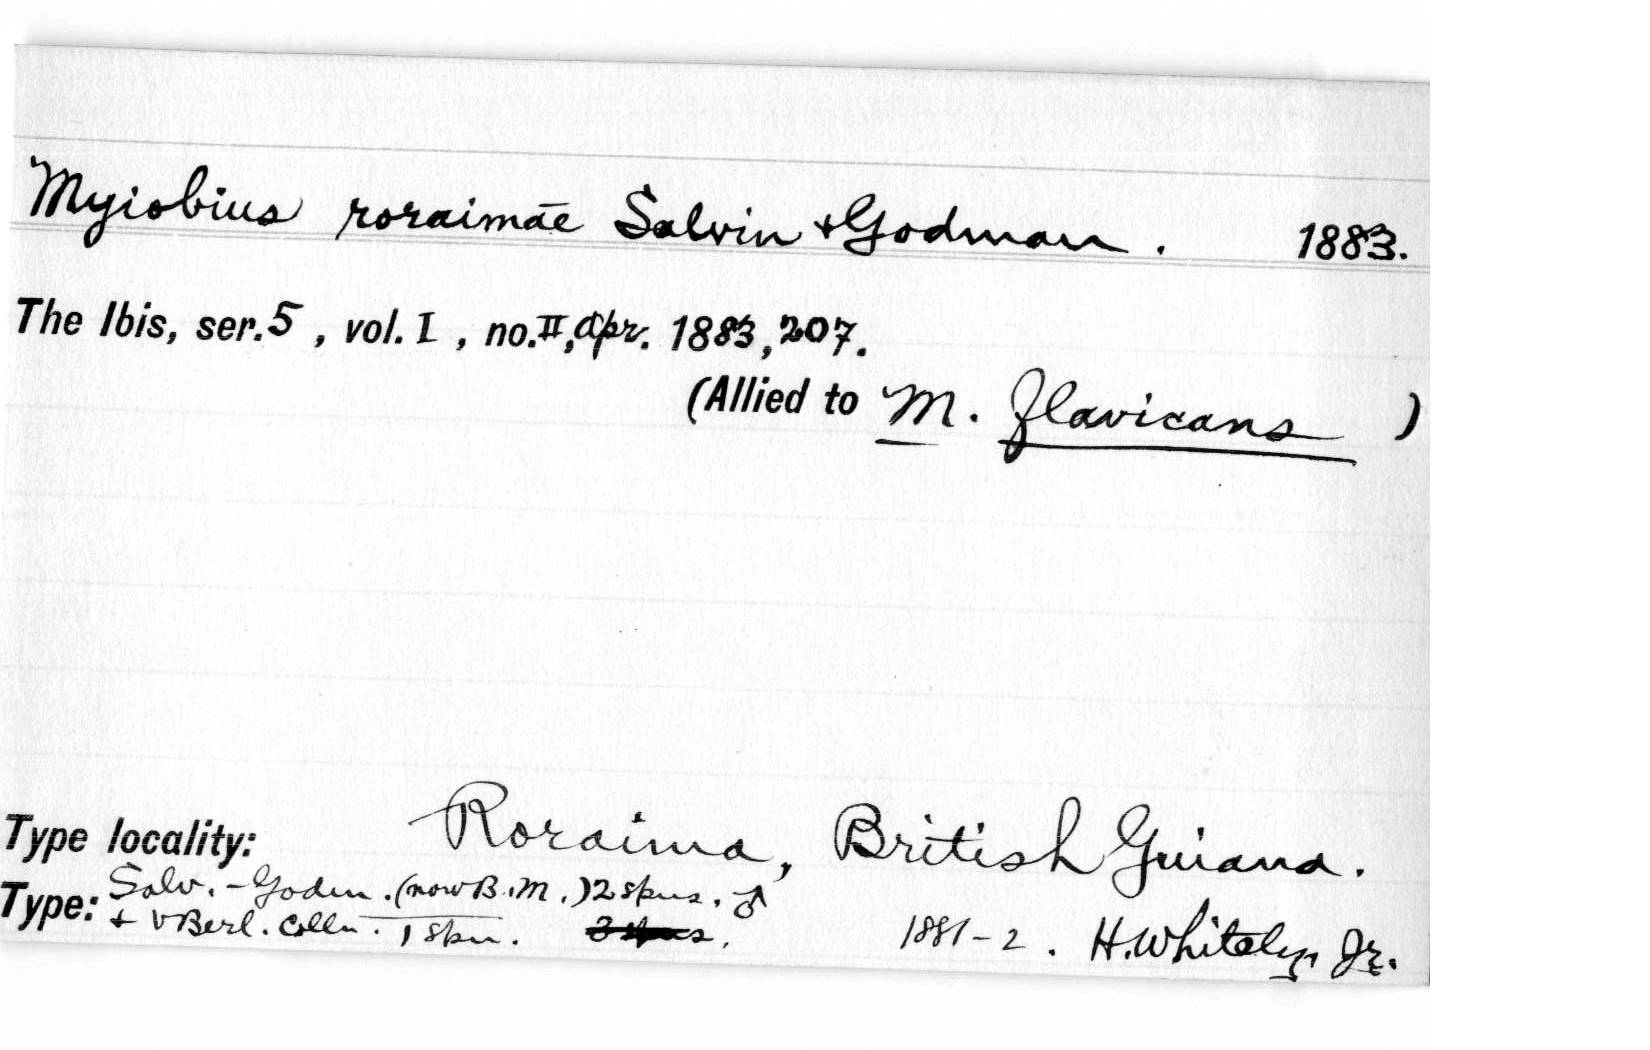 Myiobius roraimae Salvin & Godman. 1883.
The Ibis, ser. 5, vol. I, no. II, Apr. 1883, 207.
(Allied to M. flavicans )
Type locality: Roraima, British Guiana.
Type: Salv.-Godm. (now B.M.) 2 spns. ♂
+ vBerl. Colln. 1 spn. 1881-2. H. Whitely, Jr.